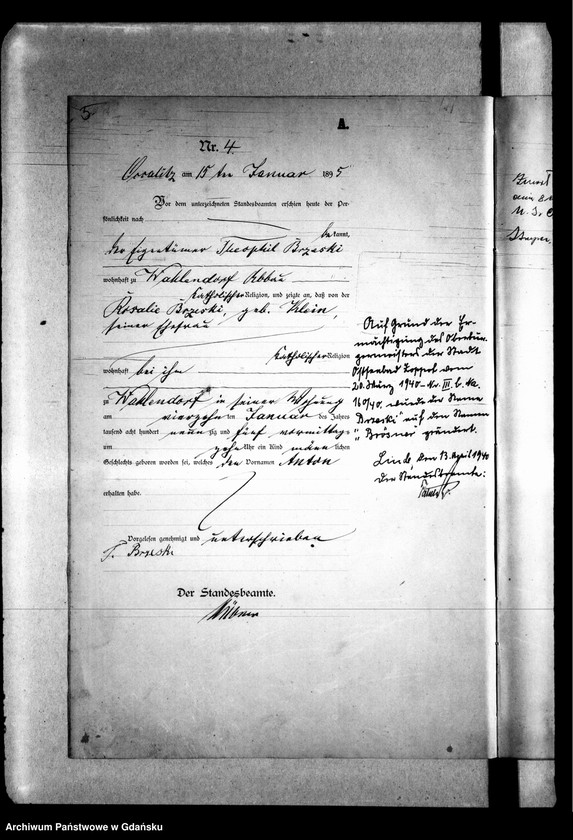 5.
A.
Nr. 4.
am 15ten Januar 1895
Vor dem unterzeichneten Standesbeamten erschien heute der Per-
sönlichkeit nach
bekannt,
der Eigentümer Theophil Brzeski
wohnhaft zu Wahlendorf Abbau
Katholischer Religion, und zeigte an, daß von der
Rosalie Brzeski, geb. Klein,
seiner Ehefrau
Katholischer Religion
wohnhaft bei ihm
zu Wahlendorf in seiner Wohnung
am vierzehnten Januar des Jahres
tausend acht hundert neunzig und fünf vormittags
um zehn Uhr ein Kind männlichen
Geschlechts geboren worden sei, welches den Vornamen Anton
erhalten habe.
Vorgelesen, genehmigt und unterschrieben
T. Brzeski
Der Standesbeamte.
Auf Grund der Er-
mächtigung des Oberbür-
germeisters der Stadt
Ostseebad Zoppot vom
20. März 1940 - Nr. III. b. Na.
160/40. wurde der Name
"Brzeski" auf den Namen
"Brösner" geändert.
Linde den 13. April 1940
Der Standesbeamte:
Archiwum Państwowe w Gdańsku